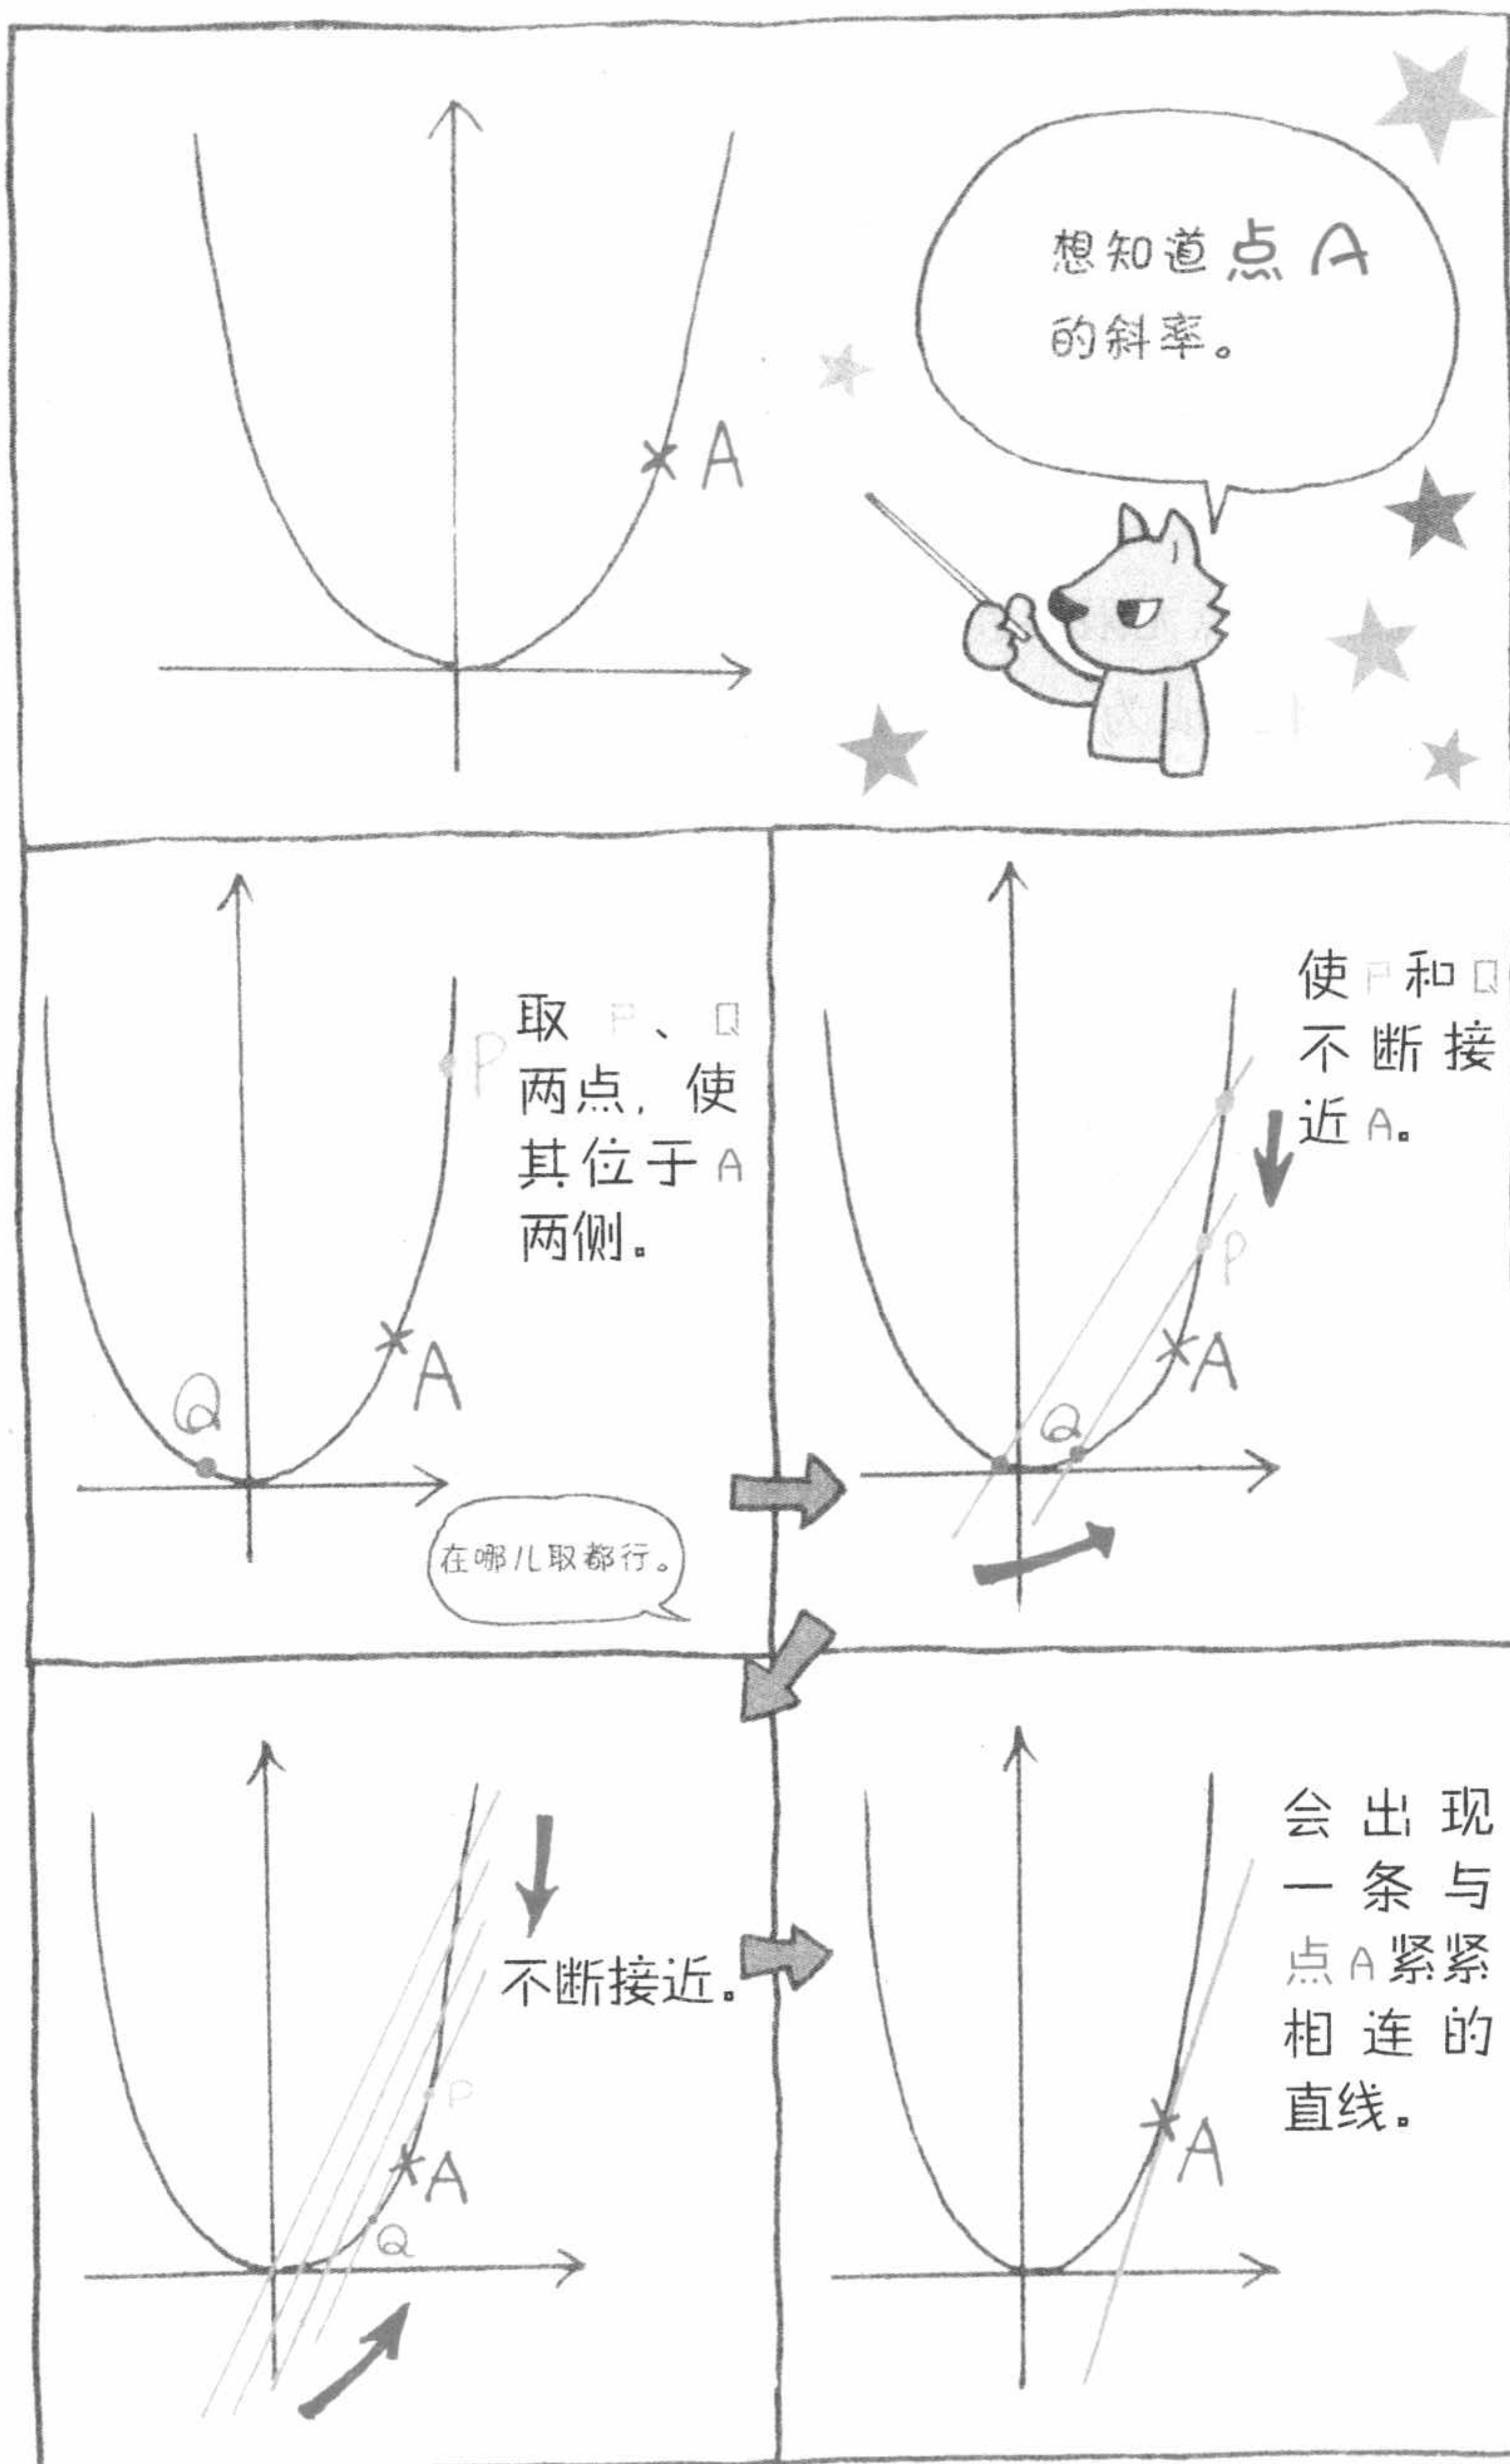 想知道点A
的斜率。
A
取 P、Q
两点，使
其位于A
两侧。
P
A
Q
在哪儿取都行。
使P和Q
不断接
近A。
P
A
Q
不断接近。
P
A
Q
会出现
一条与
点A紧紧
相连的
直线。
A